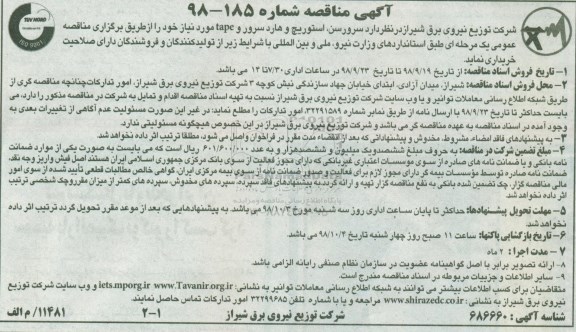 آگهی مناقصه شماره ۱۸۵-۹۸
TUV NORD
ISO 9001
شرکت توزیع نیروی برق شیراز درنظردارد سرورسن، استوریج و هارد سرور و tape مورد نیاز خود را ازطریق برگزاری مناقصه
عمومی یک مرحله ای طبق استانداردهای وزارت نیرو، ملی و بین المللی با شرایط زیر از تولیدکنندگان و فروشندگان دارای صلاحیت
خریداری نماید.
۱- تاریخ فروش اسناد مناقصه: از تاریخ ۹۸/۹/۱۹ تا تاریخ ۹۸/۹/۲۳ در ساعات اداری ۷/۳۰ تا ۱۳ می باشد.
۲- محل فروش اسناد مناقصه: شیراز، میدان آزادی، ابتدای خیابان جهاد سازندگی نبش کوچه ۳ شرکت توزیع نیروی برق شیراز، امور تدارکات چنانچه مناقصه گری از
طریق شبکه اطلاع رسانی معاملات توانیر و یا وب سایت شرکت توزیع نیروی برق شیراز نسبت به تهیه اسناد مناقصه اقدام و تمایل به شرکت در مناقصه مذکور را دارد، می
بایست حداکثر تا تاریخ ۹۸/۹/۲۳ با ارسال نامه از طریق نمابر شماره ۳۲۲۹۱۵۸۹ امور تدارکات را مطلع نماید؛ در غیر این صورت مسئولیت عدم آگاهی از تغییرات بعدی به
وجود آمده در اسناد مناقصه به عهده مناقصه گر می باشد و شرکت توزیع نیروی برق شیراز در این خصوص هیچگونه مسئولیتی ندارد.
۳- به پیشنهادهای فاقد امضاء، مشروط، مخدوش و پیشنهاداتی که بعد از انقضاء مدت مقرر در فراخوان واصل می شود، مطلقا ترتیب اثر داده نخواهد شد.
۴- مبلغ تضمین شرکت در مناقصه: به حروف مبلغ ششصدو یک میلیون و ششصدهزار و به عدد ۶۰۱/۶۰۰/۰۰۰ ریال است که می بایست به صورت یکی از موارد ضمانت
نامه بانکی و یا ضمانت نامه های صادره از سوی موسسات اعتباری غیربانکی که دارای مجوز فعالیت از سوی بانک مرکزی جمهوری اسلامی ایران هستند، اصل فیش واریز وجه نقد،
ضمانت نامه صادره توسط مؤسسات بیمه گر دارای مجوز لازم برای فعالیت و صدور ضمانت نامه از سوی بیمه مرکزی ایران، گواهی خالص مطالبات قطعی تأیید شده از سوی امور
مالی مناقصه گزار، چک تضمین شده بانکی به نفع مناقصه گزار تهیه و ارائه گردد. به پیشنهادهای فاقد سپرده، سپرده های مخدوش، سپرده های کمتر از میزان مقرر و چک شخصی ترتیب
اثر داده نخواهد شد.
۵- مهلت تحویل پیشنهادها: حداکثر تا پایان ساعت اداری روز سه شنبه مورخ ۹۸/۱۰/۳ می باشد. به پیشنهادهایی که بعد از موعد مقرر تحویل گردد ترتیب اثر داده
نخواهد شد.
۶- تاریخ بازگشایی پاکتها: ساعت ۱۱ صبح روز چهار شنبه تاریخ ۹۸/۱۰/۴ می باشد.
۷- مدت اجرا: ۲ ماه
۸- ارائه تصویر برابر با اصل گواهینامه عضویت در سازمان نظام صنفی رایانه الزامی باشد.
۹- سایر اطلاعات و جزییات مربوطه در اسناد مناقصه مندرج است.
متقاضیان برای کسب اطلاعات بیشتر می توانند به شبکه اطلاع رسانی معاملات توانیر به نشانی: www.Tavanir.org.ir یا iets.mporg.ir و وب سایت شرکت توزیع
نیروی برق شیراز به نشانی: www.shirazedc.co.ir مراجعه و یا با شماره تلفن ۳۲۲۹۹۶۸۵ امور تدارکات تماس حاصل نمایند.
شناسه آگهی: ۶۸۶۶۶۰ شرکت توزیع نیروی برق شیراز ۲-۱ ۱۱۴۸۱/م الف